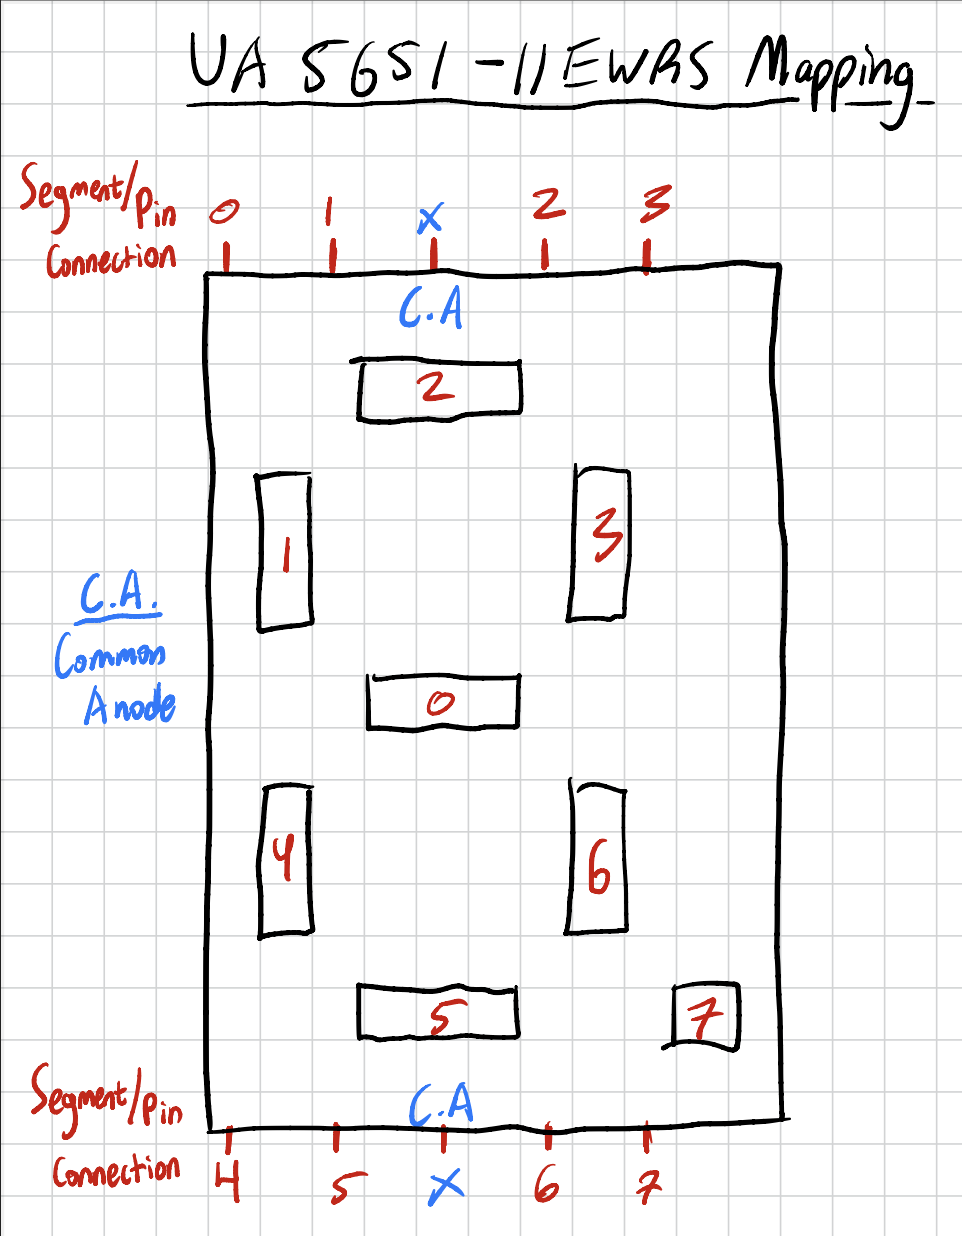 UA 5651-11EWRS Mapping
Segment/pin
Connection
0 1 x 2 3
C.A
2
1 3
C.A.
Common
Anode
0
4 6
5 7
C.A
Segment/pin
Connection
4 5 x 6 7